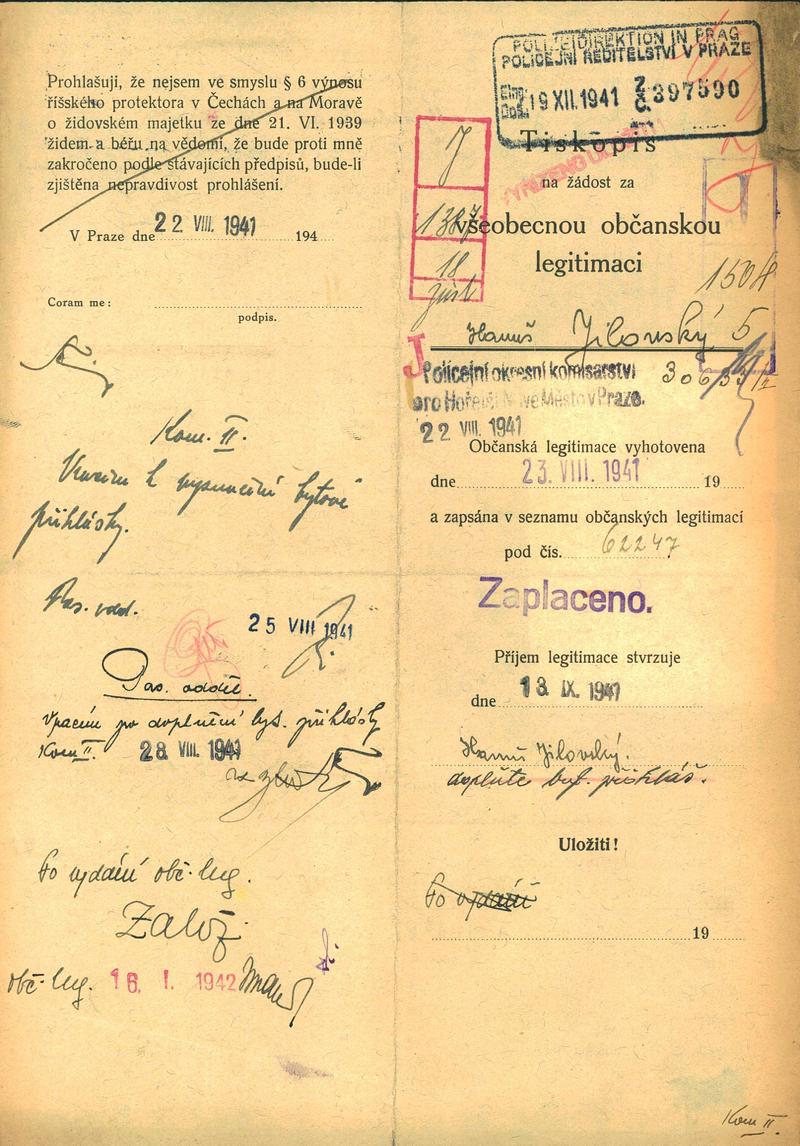 Prohlašuji, že nejsem ve smyslu § 6 výnosu
říšského protektora v Čechách a na Moravě
o židovském majetku ze dne 21. VI. 1939
židem a béřu na vědomí, že bude proti mně
zakročeno podle stávajících předpisů, bude-li
zjištěna nepravdivost prohlášení.
V Praze dne 22 VIII. 1941 194
Coram me:
podpis.
Kom. II.
Vracím k vysvětlení bytové
přihlášky.
Pas. odd.
25 VIII 1941
Pas. odděl.
Vracím po doplnění byt. přihlášky
Kom II. 28 VIII. 1941
Po vydání obč. leg.
Založ
obč. leg. 16. I. 1942
POLIZEIDIREKTION IN PRAG
POLICEJNÍ ŘEDITELSTVÍ V PRAZE
19 XII. 1941 Z Č 397590
Tiskopis
VYŘÍZENO
na žádost za
J
všeobecnou občanskou
18
legitimaci
Hanuš Jilovský 5
J
Policejní okresní komisařství
pro Hořejší Nové Město v Praze.
22 VIII. 1941
Občanská legitimace vyhotovena
dne 23. VIII. 1941 19
a zapsána v seznamu občanských legitimací
pod čís. 62247
Zaplaceno.
Příjem legitimace stvrzuje
dne 13 IX. 1941
Hanuš Jilovský.
doplňte byt. přihláš.
Uložiti!
Po vydání
19
Kom II.